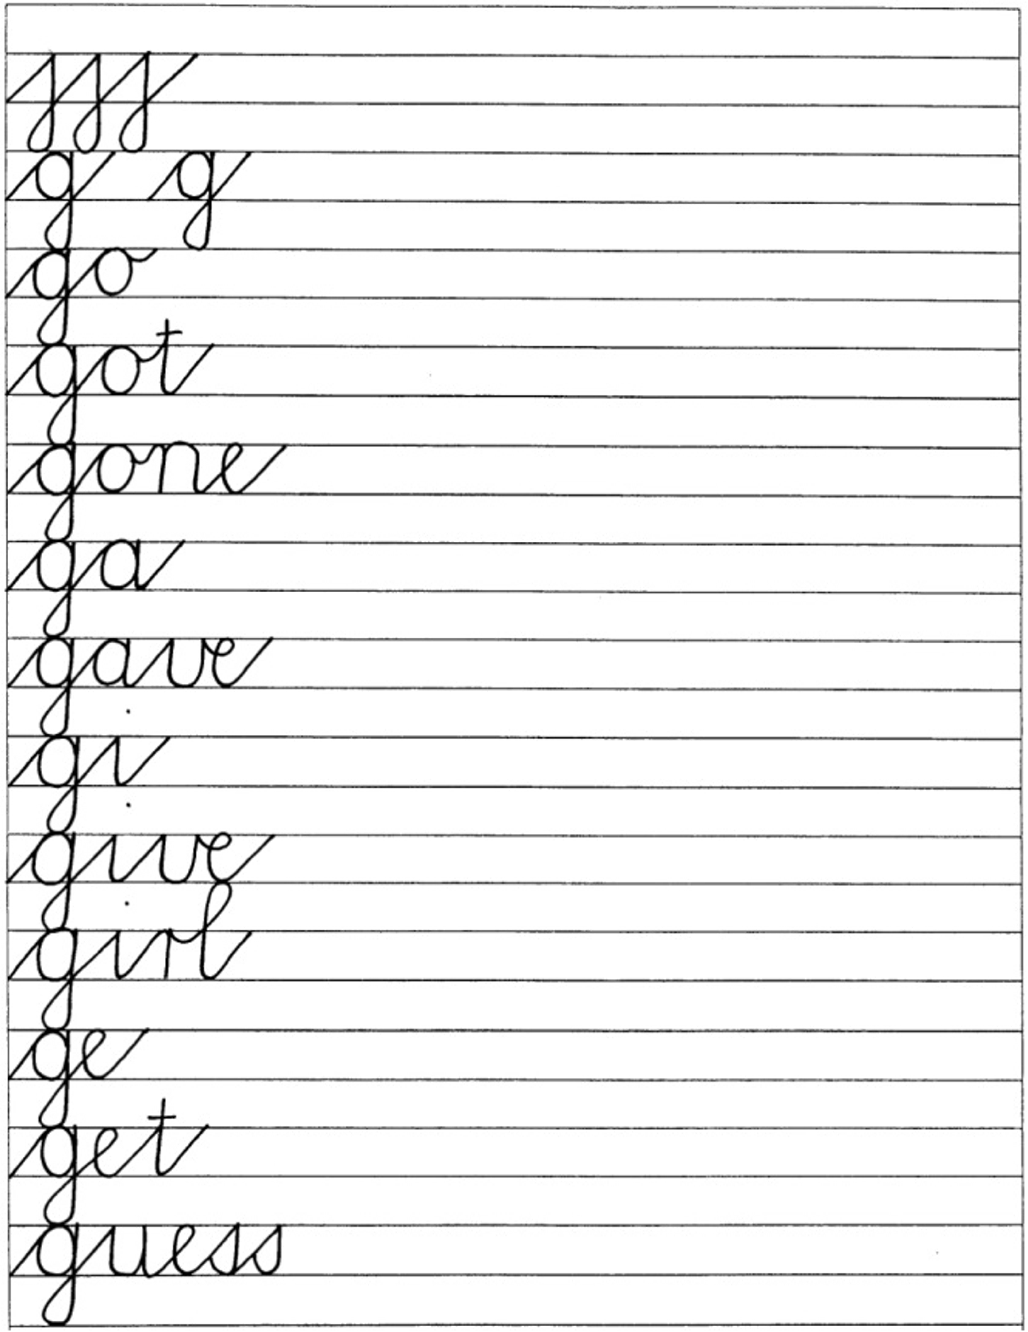 g g
go
got
gone
ga
gave
gi
give
girl
ge
get
guess